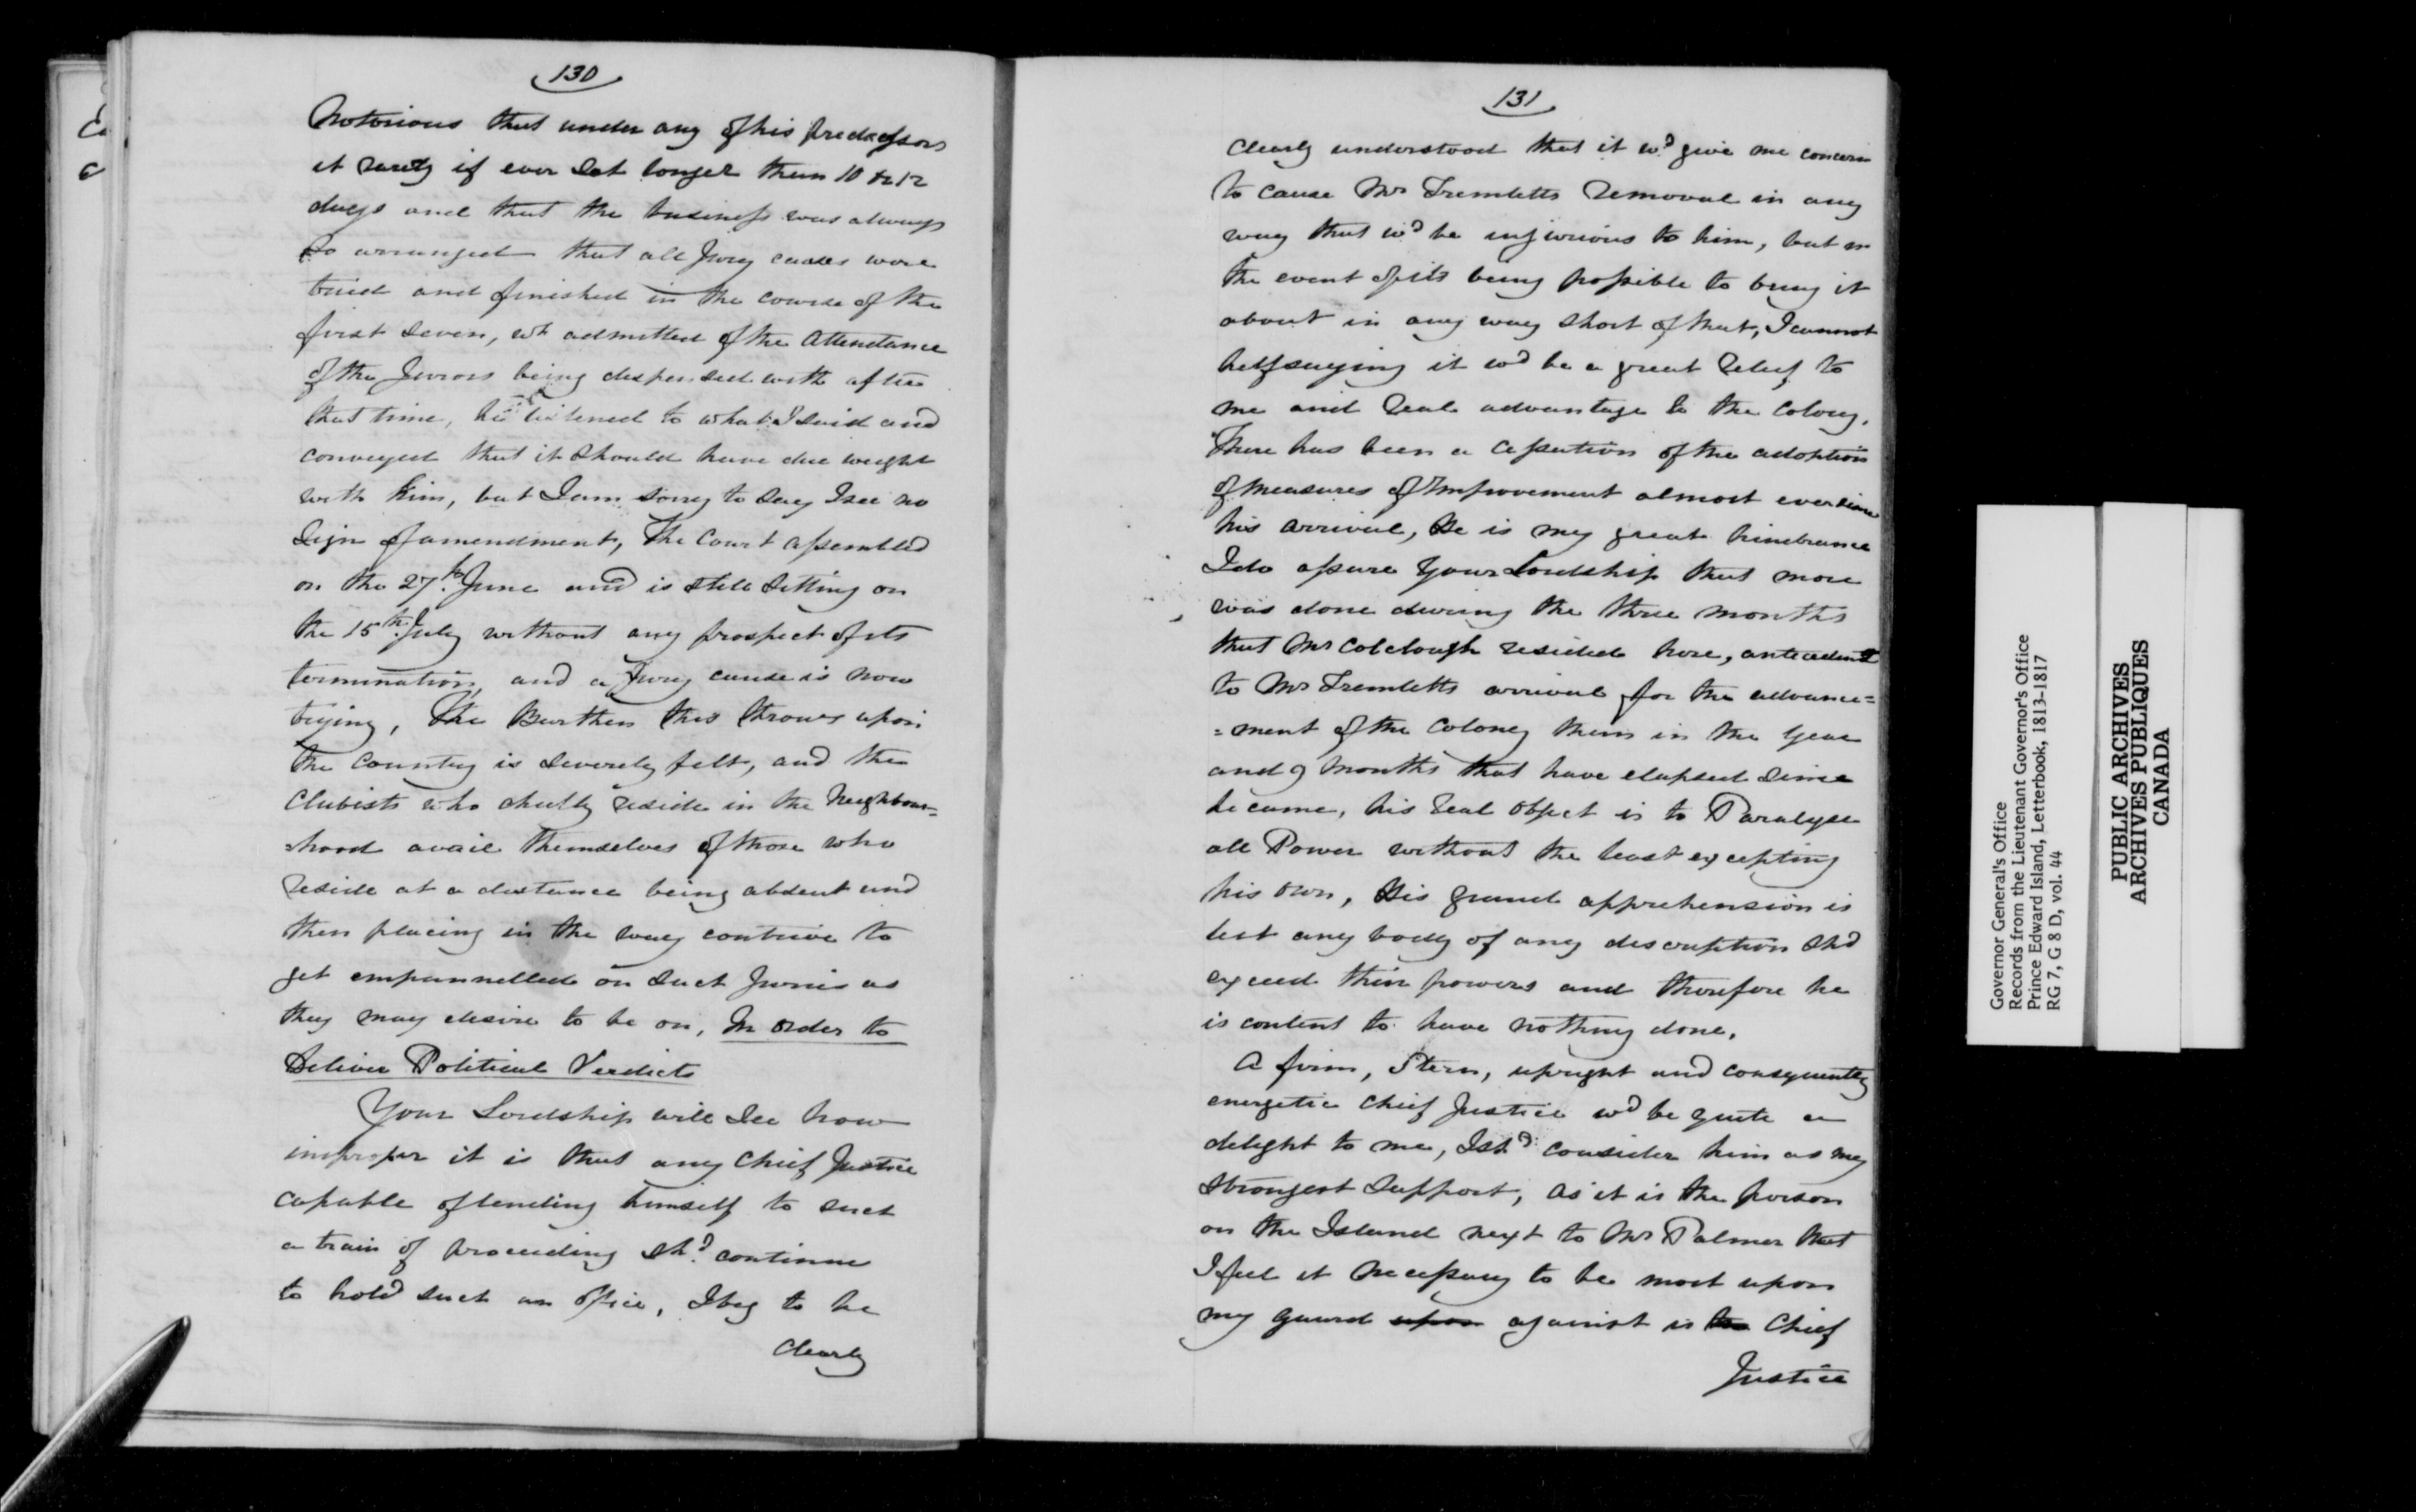 130
Notorious that under any of his predecessors
it rarely if ever sat longer than 10 or 12
days and that the business was always
so arranged that all Jury causes were
tried and finished in the course of the
first seven, wh admitted of the Attendance
of the Jurors being dispensed with after
that time, he listened to what I said and
conveyed that it should have due weight
with him, but I am sorry to say I see no
sign of amendment, The Court assembled
on the 27th June and is still sitting on
the 15th July without any prospect of its
termination, and a Jury cause is now
trying, The Burthen this throws upon
the Country is severely felt, and the
Clubists who chiefly reside in the Neighbour=
=hood avail themselves of those who
reside at a distance being absent and
then placing in the way contrive to
get empannelled on such Juries as
they may desire to be on, In order to
Deliver Political Verdicts
Your Lordship will see how
improper it is that any Chief Justice
capable of lending himself to such
a train of proceeding shd. continue
to hold such an office, I beg to be
Clearly
131
Clearly understood that it wd. give me concern
to cause Mr Tremletts removal in any
way that wd be injurious to him, but in
the event of its being possible to bring it
about in any way short of that, I cannot
help saying it wd be a great relief to
me and real advantage to the Colony.
There has been a cessation of the adoption
of measures of Improvement almost ever since
his arrival, He is my great hindrance
I do assure Your Lordship that more
was done during the three months
that Mr Colclough resided here, antecedent
to Mr Tremletts arrival for the advance=
=ment of the Colony then in the Year
and 9 months that have elapsed since
he came, his real object is to Paralyse
all Power without the least excepting
his own, His grand apprehension is
lest any body of any description shd
exceed their powers and therefore he
is content to have nothing done.
A firm, Stern, upright and consequently
energetic Chief Justice wd be quite a
delight to me, I shd. consider him as my
strongest support, as it is the person
on the Island next to Mr Palmer that
I feel it necessary to be most upon
my guard upon against is the Chief
Justice
Governor General's Office
Records from the Lieutenant Governor's Office
Prince Edward Island, Letterbook, 1813-1817
RG 7, G 8 D, vol. 44
PUBLIC ARCHIVES
ARCHIVES PUBLIQUES
CANADA